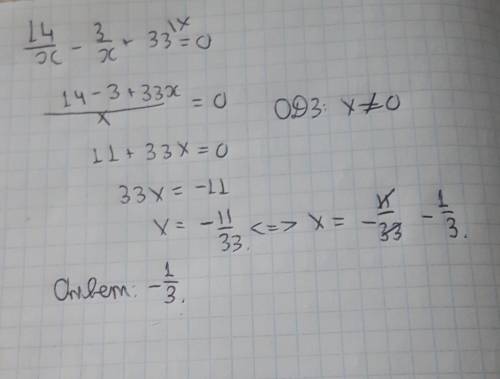 14/x - 3/x + 33 \x = 0
14 - 3 + 33x / x = 0 ОДЗ: x ≠ 0
11 + 33x = 0
33x = -11
x = -11/33. <=> x = -11/33 -1/3.
Ответ: -1/3.